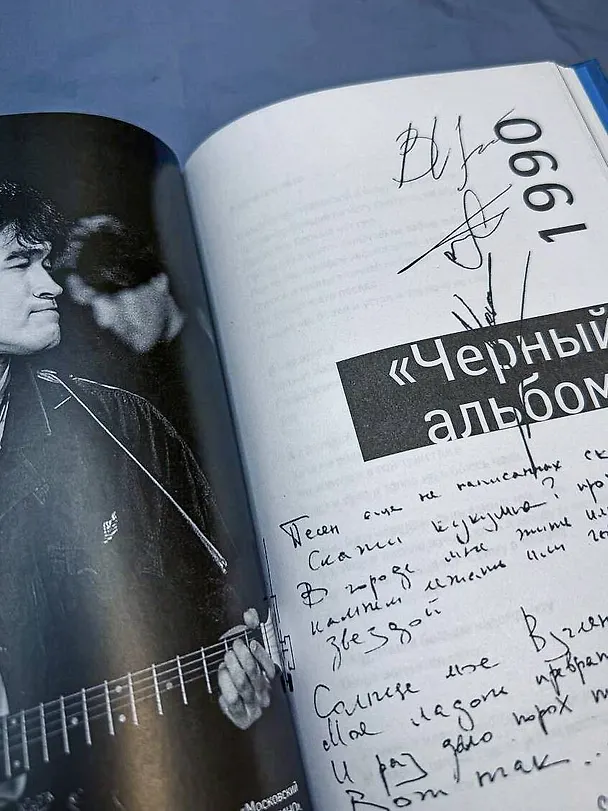 «Московский
1990
«Черный
альбом
Песен еще не написанных ск
Скажи кукушка? про
В городе мне жить ил
камнем лежать или го
звездой
Солнце мое Взглян
Моя ладонь преврат
И раз дело порох
Вот так...